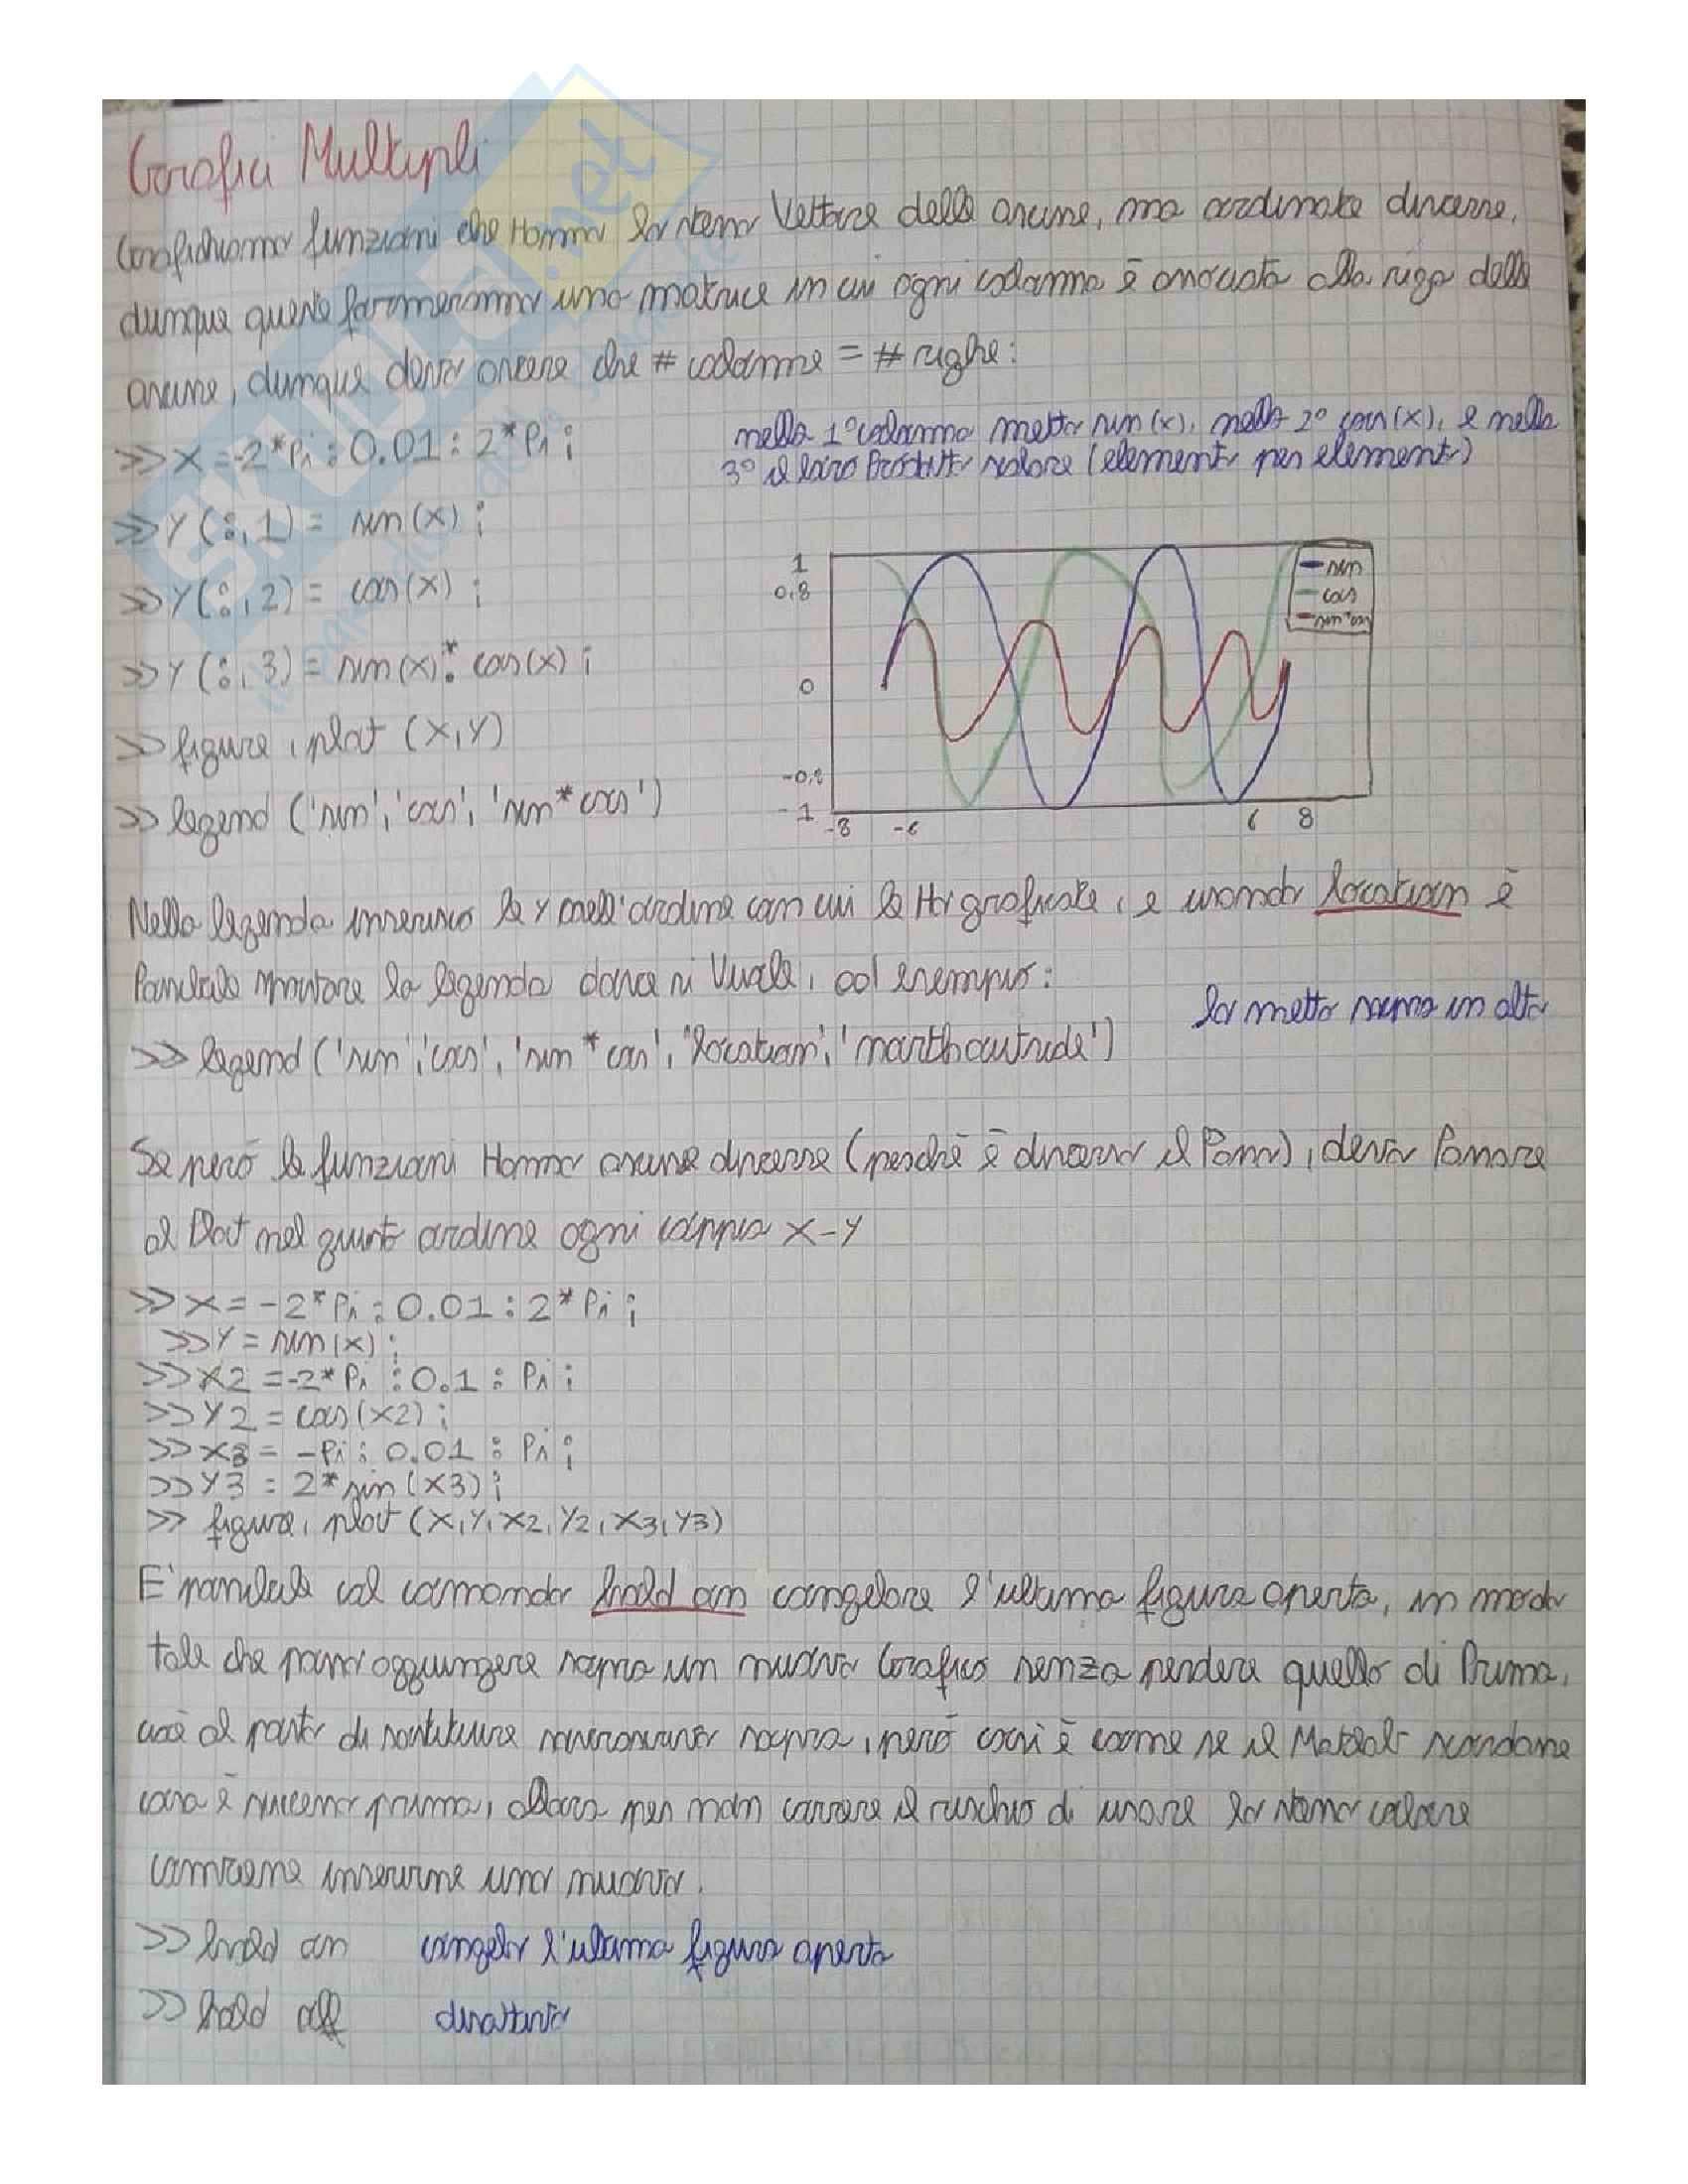 Grafici Multipli
Grafichiamo funzioni che Hanno lo stesso Vettore delle ascisse, ma ordinate diverse,
dunque queste formeranno una matrice in cui ogni colonna è associata alla riga delle
ascisse, dunque devo avere che # colonne = # righe:
>> X = -2*Pi : 0.01 : 2*Pi ;
nella 1° colonna metto sin(x), nella 2° cos(x), e nella
3° il loro Prodotto scalare (elemento per elemento)
>> Y(:,1) = sin(x) ;
>> Y(:,2) = cos(x) ;
>> Y(:,3) = sin(x).* cos(x) ;
>> figure, plot (X,Y)
>> legend ('sin','cos','sin*cos')
1
0,8
0
-0,8
-1
-8 -6 6 8
sin
cos
sin*cos
Nella legenda inserisco le y nell'ordine con cui le Ho graficate, e usando location è
Possibile spostare la legenda dove si Vuole, ad esempio:
lo metto sopra in alto
>> legend ('sin','cos','sin*cos','location','northoutside')
Se però le funzioni Hanno ascisse diverse (perchè è diverso il Passo), devo Passare
al Plot nel giusto ordine ogni coppia X-Y
>> X = -2*Pi : 0.01 : 2*Pi ;
>> Y = sin(x) ;
>> X2 = -2*Pi : 0.1 : Pi ;
>> Y2 = cos(x2) ;
>> X3 = -Pi : 0.01 : Pi ;
>> Y3 = 2*sin(x3) ;
>> figure, plot (X,Y,X2,Y2,X3,Y3)
E' possibile col comando hold on congelare l'ultima figura aperta, in modo
tale che posso aggiungere sopra un nuovo Grafico senza perdere quello di Prima,
cioè al posto di sostituire sovrascrivo sopra, però così è come se il Matlab scordasse
cosa è successo prima, allora per non correre il rischio di usare lo stesso colore
conviene inserirne uno nuovo.
>> hold on congelo l'ultima figura aperta
>> hold off disattivo
SKUOLA.net